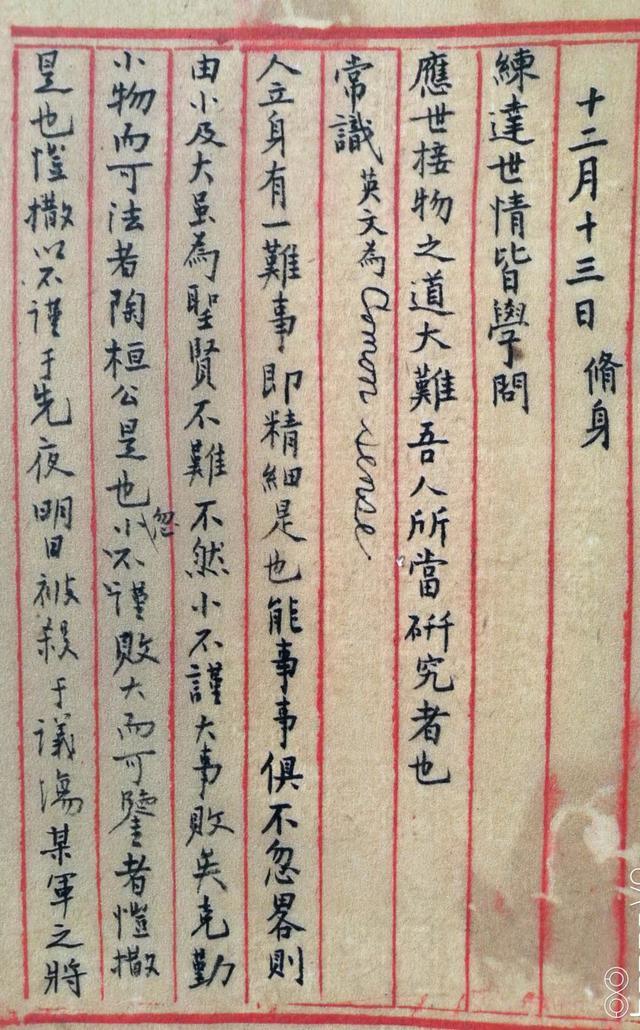 十二月十三日　脩身
練達世情皆學問
應世接物之道大難吾人所當研究者也
常識 英文為 Comon sense.
人立身有一難事即精細是也能事事俱不忽畧則
由小及大虽為聖賢不難不然小不謹大事敗矣克勤
小物而可法者陶桓公是也小不忽謹敗大而可鑒者愷撒
是也愷撒以不謹于先夜明日被殺于議場某軍之將